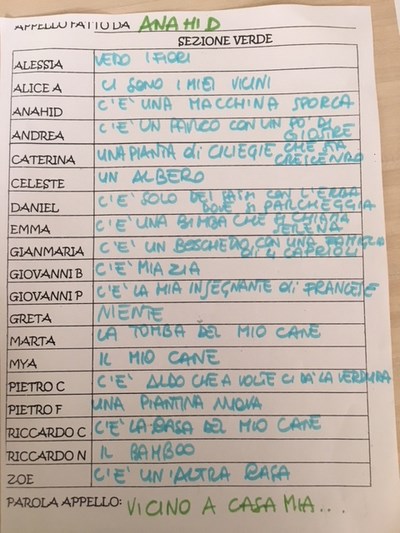 APPELLO FATTO DA ANAHID
SEZIONE VERDE
ALESSIA VEDO I FIORI
ALICE A CI SONO I MIEI VICINI
ANAHID C'E' UNA MACCHINA SPORCA
ANDREA C'E' UN PARCO CON UN PO' DI
GIOSTRE
CATERINA UNA PIANTA di CILIEGIE CHE STA
CRESCENDO
CELESTE UN ALBERO
DANIEL C'E' SOLO DEI CON L'ERBA
DOVE SI PARCHEGGIA
EMMA C'E' UNA BIMBA CHE SI CHIAMA
SERENA
GIANMARIA C'E' UN BOSCHETTO CON UNA FAMIGLIA
DI 4 CAPRIOLI
GIOVANNI B C'E' MIA ZIA
GIOVANNI P C'E' LA MIA INSEGNANTE di FRANCESE
GRETA NIENTE
MARTA LA TOMBA DEL MIO CANE
MYA IL MIO CANE
PIETRO C C'E' ALDO CHE A VOLTE CI DA' LA VERDURA
PIETRO F UNA PIANTINA NUOVA
RICCARDO C C'E' LA CASA DEL MIO CANE
RICCARDO N IL BAMBOO
ZOE C'E' UN'ALTRA CASA
PAROLA APPELLO: VICINO A CASA MIA...